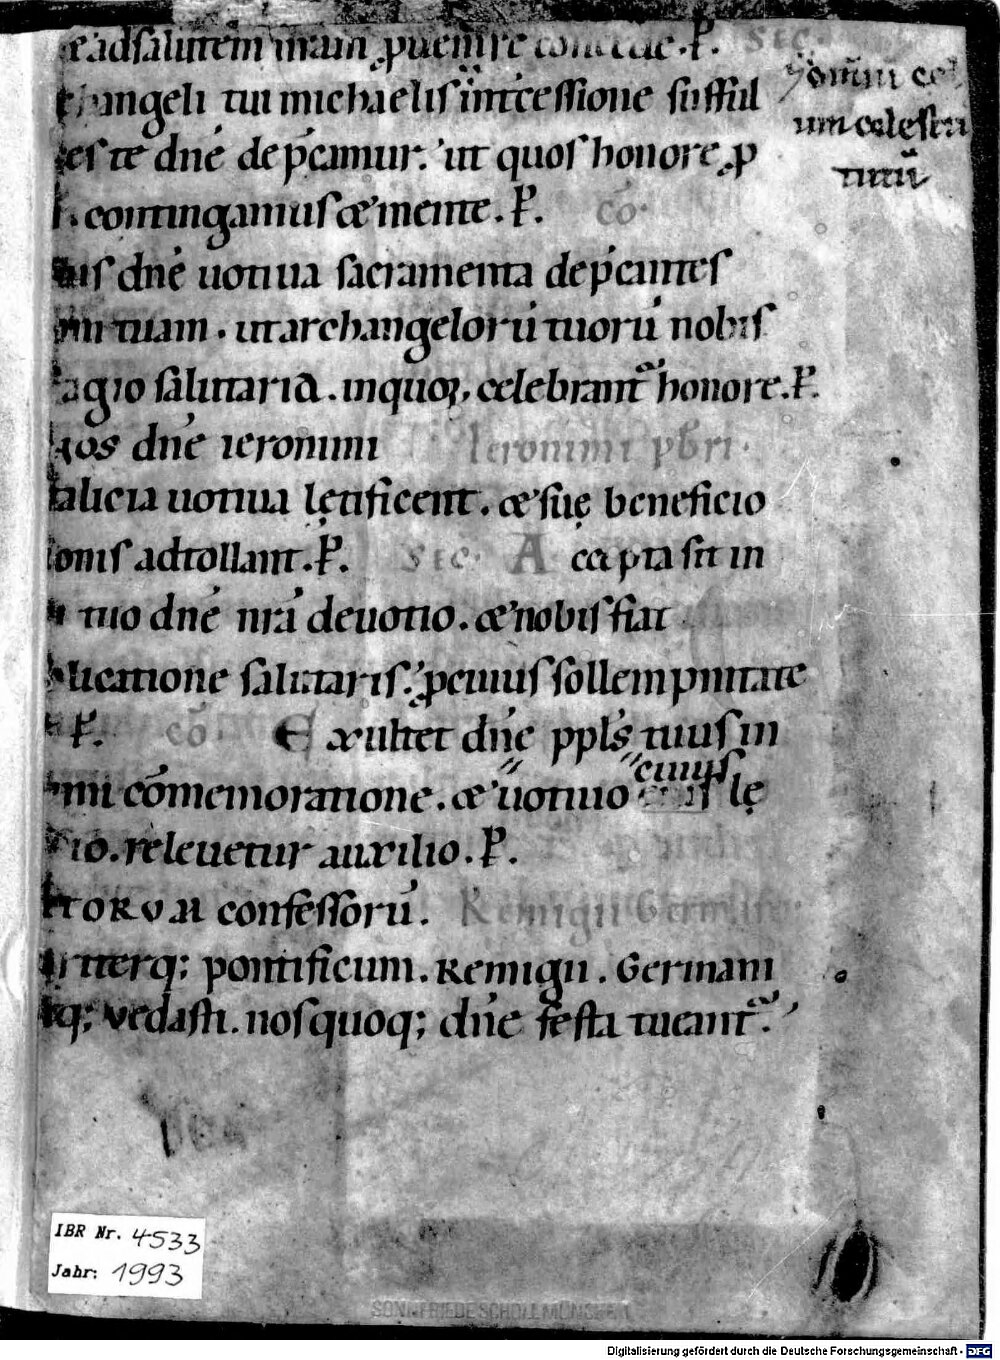 adsalutem nram puenire concede. P. SEC.
changeli tui michaelis intcessione sufful
tes te dnē dep̄camur. ut quos honore p
contingamus & mente. P. cō.
dnē uotiua sacramenta dep̄cantes
tuam. ut archangelorū tuorū nobis
agio salutaria. in quoꝝ celebrant honore. P.
nos dnē ieronimi Ieronimi pbri.
talicia uotiua lętificent. & suę beneficio
onis adtollant. P. SEC. Accepta sit in
tuo dnē nrā deuotio. & nobis fiat
plicatione salutaris. p cuius sollempnitate
P. cō. Exultet dnē ppls tuus in
cuius
mi cōmemoratione. & uotiuo lę
io. releuetur auxilio. P.
TORVM confessorū. Remigii Germani
terq; pontificum. Remigii. Germani
tq; Vedasti. nos quoq; dnē festa tueant.
celestri
IBR Nr. 4533
Jahr: 1993
SONNFRIEDE SCHOLL MÜNCHEN
Digitalisierung gefördert durch die Deutsche Forschungsgemeinschaft - DFG